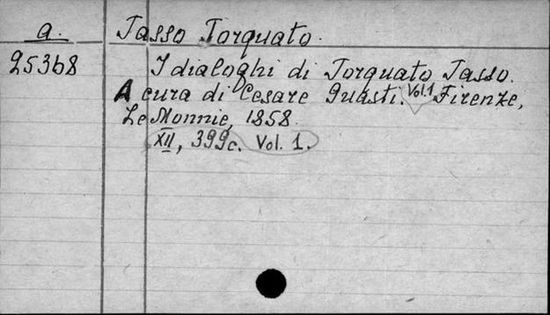 a. Tasso Torquato.
25368 I dialoghi di Torquato Tasso.
A cura di Cesare Guasti. Vol.1 Firenze,
Le Monnie, 1858.
XII, 399c. Vol. 1.